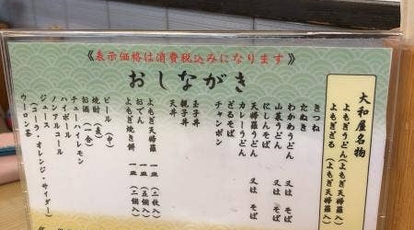 《表示価格は消費税込みになります》
おしながき
大和屋名物
よもぎうどん(よもぎ天婦羅入)
よもぎざる(よもぎ天婦羅入)
きつね
たぬき
わかめうどん 又は そば
山菜うどん 又は そば
にしんそば
天婦羅うどん 又は そば
カレーうどん
ざるそば
チャンポン
玉子丼
親子丼
天丼
よもぎ天婦羅 一皿(二枚入)
おでん 一皿(五個入)
よもぎ焼き餅 一皿(二個入)
ビール(中)
お酒(一合)
焼酎(麦)
チューハイレモン
ハイボール
ノンアルコール
ジュース(コーラ・オレンジ・サイダー)
ウーロン茶